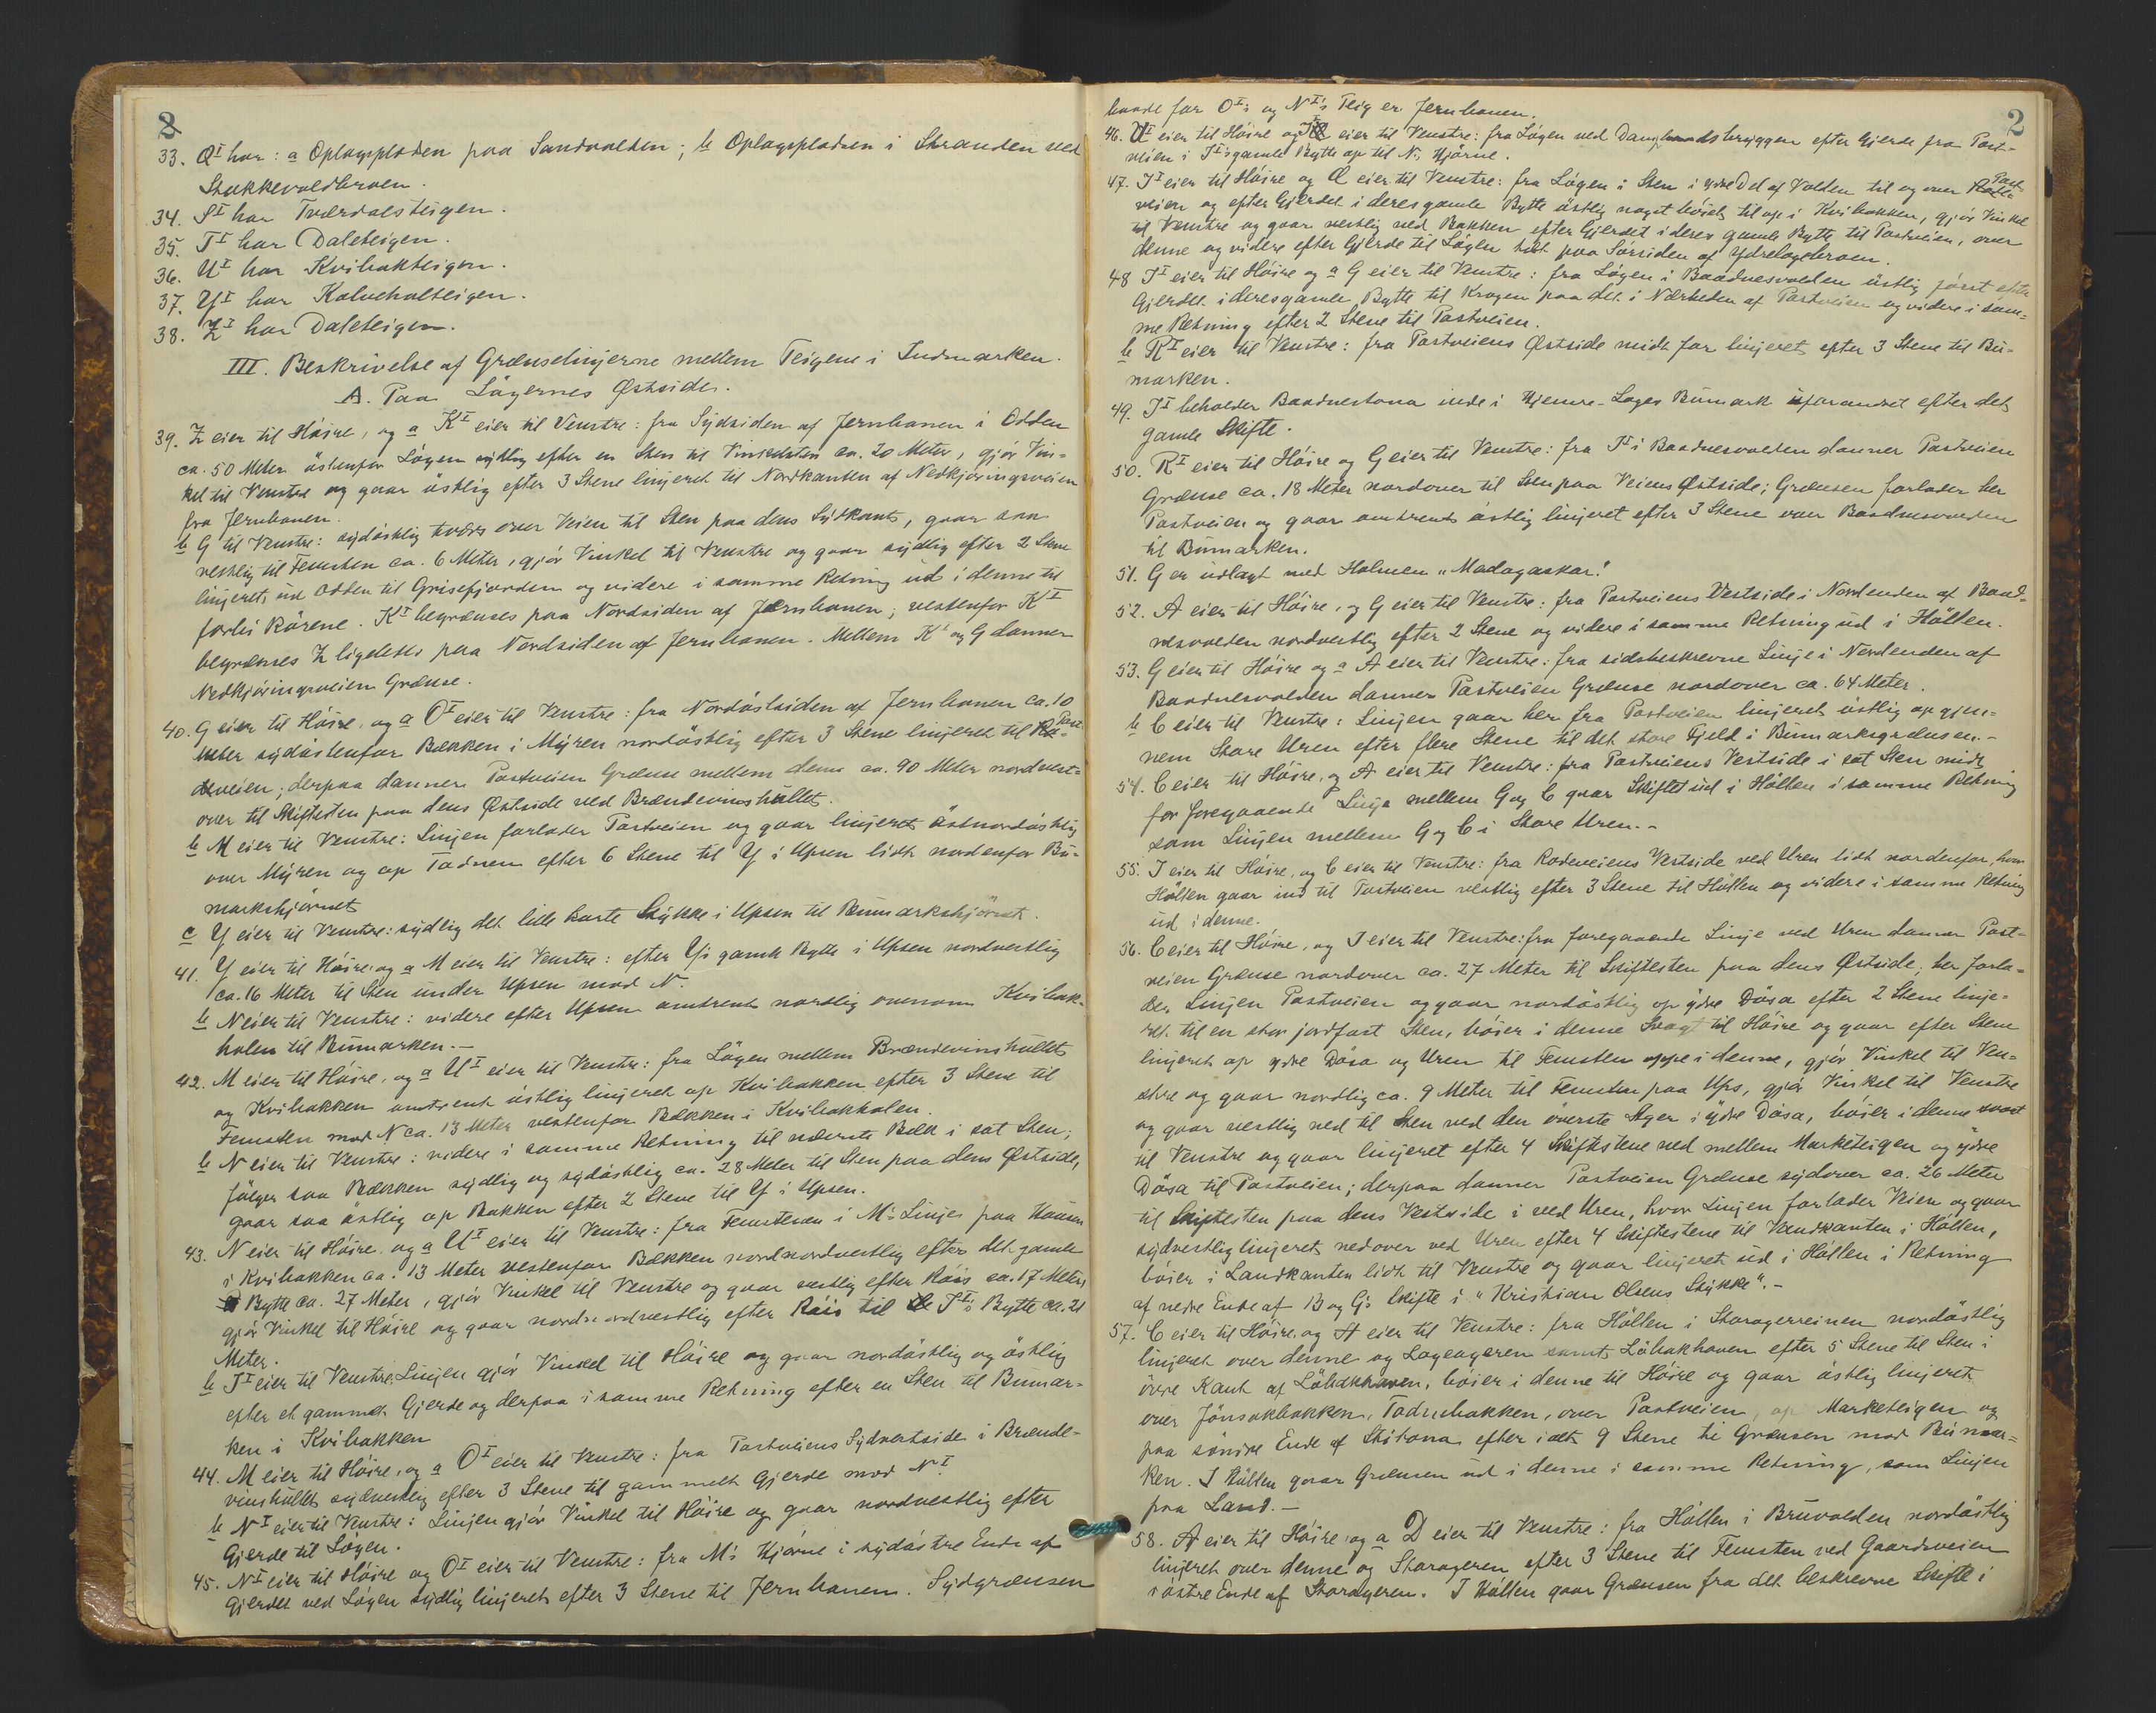 2
33. Q^I har: a Oplagspladsen paa Sandvolden; b Oplagspladsen i Stranden ved
Stakkevoldbroen.
34. S^I har Tverdalsteigen.
35. T^I har Daleteigen.
36. U^I har Kvibakteigen.
37. Y^I har Kalveholteigen.
38. Z^I har Daleteigen.
III. Beskrivelse af Grænselinjerne mellem Teigene i Indmarken.
A. Paa Lågernes Østside.
39. Z eier til Høire, og a K^I eier til Venstre: fra Sydsiden af Jernbanen i Odden
ca. 50 Meter østenfor Lågen sydlig efter en Sten til Vinkelsten ca. 20 Meter, gjør Vin-
kel til Venstre og gaar østlig efter 3 Stene linjeret til Nordkanten af Nedkjøringsveien
fra Jernbanen.
b G til Venstre: sydøstlig tværs over Veien til Sten paa dens Sydkant, gaar saa
vestlig til Femsten ca. 6 Meter, gjør Vinkel til Venstre og gaar sydlig efter 2 Stene
linjeret ud Odden til Grisefjorden og videre i samme Retning ud i denne til
forbi Rørene. K^I begrænses paa Nordsiden af Jernbanen; vestenfor K^I
begrænses Z ligeledes paa Nordsiden af Jernbanen. Mellem K^I og G danner
Nedkjøringsveien Grænse.
40. G eier til Høire, og a O^I eier til Venstre: fra Nordøstsiden af Jernbanen ca. 10
Meter sydøstenfor Bækken i Myren nordøstlig efter 3 Stene linjeret til Post-
veien; derpaa danner Postveien Grænse mellem dem ca. 90 Meter nordvest-
over til Skiftesten paa dens Østside ved Brændevinshullet.
b M eier til Venstre: Linjen forlader Postveien og gaar linjeret østnordøstlig
over Myren og op Tadnen efter 6 Stene til Y i Upsen lidt nordenfor Bu-
markshjørnet
c Y eier til Venstre: sydlig det lille korte Stykke i Upsen til Bumarkshjørnet.
41. Y eier til Høire, og a M eier til Venstre: efter Y's gamle Bytte i Upsen nordvestlig
ca. 16 Meter til Sten under Upsen mod N.
b N eier til Venstre: videre efter Upsen omtrent nordlig ovenom Kvibak-
holen til Bumarken.-
42. M eier til Høire, og a U^I eier til Venstre: fra Lågen mellem Brændevinshullet
og Kvibakken omtrent østlig linjeret op Kvibakken efter 3 Stene til
Femsten mod N ca. 13 Meter vestenfor Bækken i Kvibakholen.
b N eier til Venstre: videre i samme Retning til nærmte Bæk i sat Sten;
følger saa Bækken sydlig og sydøstlig ca. 28 Meter til Sten paa dens Østside,
gaar saa østlig op Bakken efter 2 Stene til Y i Upsen.
43. N eier til Høire, og a U^I eier til Venstre: fra Femstenen i M's Linje paa Haugen
i Kvibakken ca. 13 Meter vestenfor Bækken nordnordvestlig efter det gamle
Bytte ca. 27 Meter, gjør Vinkel til Venstre og gaar vestlig efter Røis ca. 17 Meter,
gjør Vinkel til Høire og gaar nordnordvestlig efter Røis til T^I's Bytte ca. 21
Meter.
b T^I eier til Venstre: Linjen gjør Vinkel til Høire og gaar nordøstlig og østlig
efter et gammelt Gjerde og derpaa i samme Retning efter en Sten til Bumar-
ken i Kvibakken
44. M eier til Høire, og a O^I eier til Venstre: fra Postveiens Sydvestside i Brænde-
vinshullet sydvestlig efter 3 Stene til gammelt Gjerde mod N^I.
b N^I eier til Venstre: Linjen gjør Vinkel til Høire og gaar nordvestlig efter
Gjerde til Lågen.
45. N^I eier til Høire og O^I eier til Venstre: fra M's Hjørne i sydøstre Ende af
Gjerdet ved Lågen sydlig linjeret efter 3 Stene til Jernbanen. Sydgrænsen
2
baade for O^I's og N^I's Teig er Jernbanen.
46. U^I eier til Høire og eier til Venstre: fra Lågen ved Dampbaadsbryggen efter Gjerde fra Post-
veien i T^I's gamle Bytte op til N's Hjørne.
47. T^I eier til Høire og Q eier til Venstre: fra Lågen i Sten i ydre Del af Volden til og over Post-
veien og efter Gjerdet i deres gamle Bytte østlig noget bøiet til op i Kvibakken, gjør Vinkel
til Venstre og gaar vestlig ned Bakken efter Gjerdet i deres gamle Bytte til Postveien, over
denne og videre efter Gjerde til Lågen tæt paa Sørsiden af Ydrelagebroen.
48 T^I eier til Høire og a G eier til Venstre: fra Lågen i Baadnesvolden østlig først efter
Gjerdet i deres gamle Bytte til Krogen paa det i Nærheden af Postveien og videre i sam-
me Retning efter 2 Stene til Postveien.
b R^I eier til Venstre: fra Postveiens Østside midt for linjeret efter 3 Stene til Bu-
marken.
49. T^I beholder Baadnestona inde i Hjemre-Lages Bumark uforandret efter det
gamle Skifte.
50. R^I eier til Høire og G eier til Venstre: fra T^I i Baadnesvolden danner Postveien
Grænse ca. 18 Meter nordover til Sten paa Veiens Østside; Grænsen forlader her
Postveien og gaar omtrent østlig linjeret efter 3 Stene over Baadnesvolden
til Bumarken.
51. G er udlagt med Holmen "Madagaskar".
52. A eier til Høire, og G eier til Venstre: fra Postveiens Vestside i Nordenden af Baad-
nesvolden nordvestlig efter 2 Stene og videre i samme Retning ud i Hållen.
53. G eier til Høire og a A eier til Venstre: fra sidstbeskrevne Linje i Nordenden af
Baadnesvolden danner Postveien Grænse nordover ca. 64 Meter.
b C eier til Venstre: Linjen gaar her fra Postveien linjeret østlig op gjen-
nem Store Uren efter flere Stene til det store Fjeld i Bumarksgrænsen.-
54. C eier til Høire, og A eier til Venstre: fra Postveiens Vestside i sat Sten midt
for foregaaende Linje mellem G og C gaar Skiftet ud i Hållen i samme Retning
som Linjen mellem G og C i Store Uren.-
55. I eier til Høire, og C eier til Venstre: fra Rodeveiens Vestside ved Uren lidt nordenfor, hvor
Hållen gaar ind til Postveien vestlig efter 3 Stene til Hållen og videre i samme Retning
ud i denne.
56. C eier til Høire, og I eier til Venstre: fra foregaaende Linje ved Uren danner Post-
veien Grænse nordover ca. 27 Meter til Skiftesten paa dens Østside; her forla-
der Linjen Postveien og gaar nordøstlig op ydre Døsa efter 2 Stene linje-
ret til en stor jordfast Sten, bøier i denne svagt til Høire og gaar efter Stene
linjeret op ydre Døsa og Uren til Femsten oppe i denne, gjør Vinkel til Ven-
stre og gaar nordlig ca. 9 Meter til Femsten paa Ups, gjør Vinkel til Venstre
og gaar vestlig ned til Sten ved den øverste Ager i ydre Døsa, bøier i denne svart
til Venstre og gaar linjeret efter 4 Skiftestene ned mellem Marketeigen og ydre
Døsa til Postveien; derpaa danner Postveien Grænse sydover ca. 26 Meter
til Skiftesten paa dens Vestside i ved Uren, hvor Linjen forlader Veien og gaar
sydvestlig linjeret nedover ved Uren efter 4 Skiftestene til Vandkanten i Hållen,
bøier i Landkanten lidt til Venstre og gaar linjeret ud i Hållen i Retning
af nedre Ende af B og G's Skifte i "Kristian Olsens Stykke".-
57. C eier til Høire, og A eier til Venstre: fra Hållen i Storagerreinen nordøstlig
linjeret over denne og Lageageren samt Løbakhaven efter 5 Stene til Sten i
øvre Kant af Løbakhaven, bøier i denne til Høire og gaar østlig linjeret
over Jønsokbakken, Tadnebakken, over Postveien, op Marketeigen og
paa søndre Ende af Skitona efter ialt 9 Stene til Grænsen mod Bumar-
ken. I Hållen gaar Grænsen ud i denne i samme Retning, som Linjen
paa Land.-
58. A eier til Høire, og a D eier til Venstre: fra Hållen i Bruvolden nordøstlig
linjeret over denne og Storageren efter 3 Stene til Femsten ved Gaardsveien
i østre Ende af Storageren. I Hållen gaar Grænsen fra det beskrevne Skifte i